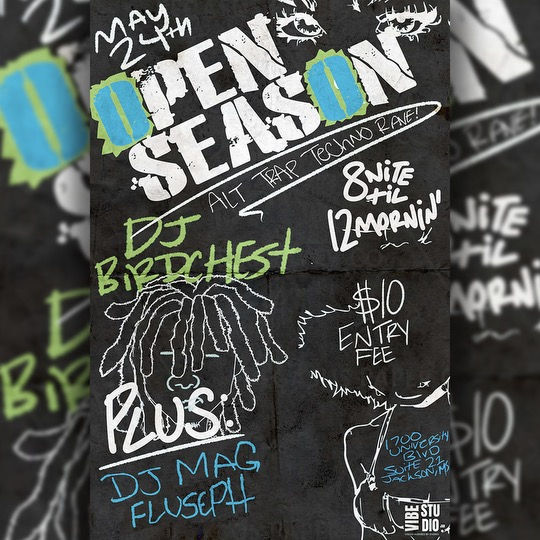 MAY
24TH
OPEN
SEASON
ALT TRAP TECHNO RAVE!
8NITE
til
12MORNIN'
DJ
BIRDCHEST
$10
ENTRY
FEE
PLUS:
DJ MAG
FLUSEPH
1700
UNIVERSITY
BLVD
SUITE 22
JACKSON, MS
VIBE
STU
DIO